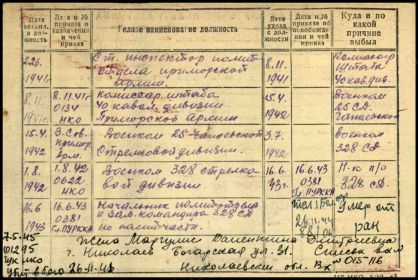 Дата вступл. в должность
Дата и № приказа о назначении и чей приказ
Полное наименование должность
Дата ухода с должности
Дата и № приказа об освобождении и чей приказа
Куда и по какой причине выбыл
22.6. 1941 г.
Ст. инспектор полит
отдела Приморской
армии.
8.11. 1941
Комиссар
штаба
40 кав. див.
8.11. 1941 г.
8.11.41 г. 0134 НКО
Комиссар штаба
40 кавал. дивизии
Приморской Армии
15.4. 1942
Военком
25 СД.
Чапаевской
15.4. 1942
Военком 25 Чапаевской
Стрелковой дивизии.
3.7. 1942
Военком
328 СД
1.8. 1942
1.8.42 0622 НКО
Военком 328 стрелко
вой дивизии.
16.6 43 г.
16.6.43 0381 Гл. ПУРККА
Н-к п/о
328 сд.
16.6 1943
16.6.43 0381 Гл. ПУРККА
Начальник политотдела
и зам. командира 328 СД
по политчасти.
26.11.43
Умер от
ран
Жена Маргулис Валентина Дмитриевна
г. Николаев Богарская ул. 31.
Николаевской обл.
7.5.45
01295
ГУК НКО
убит в бою 26-11-43
Список
№ 015116